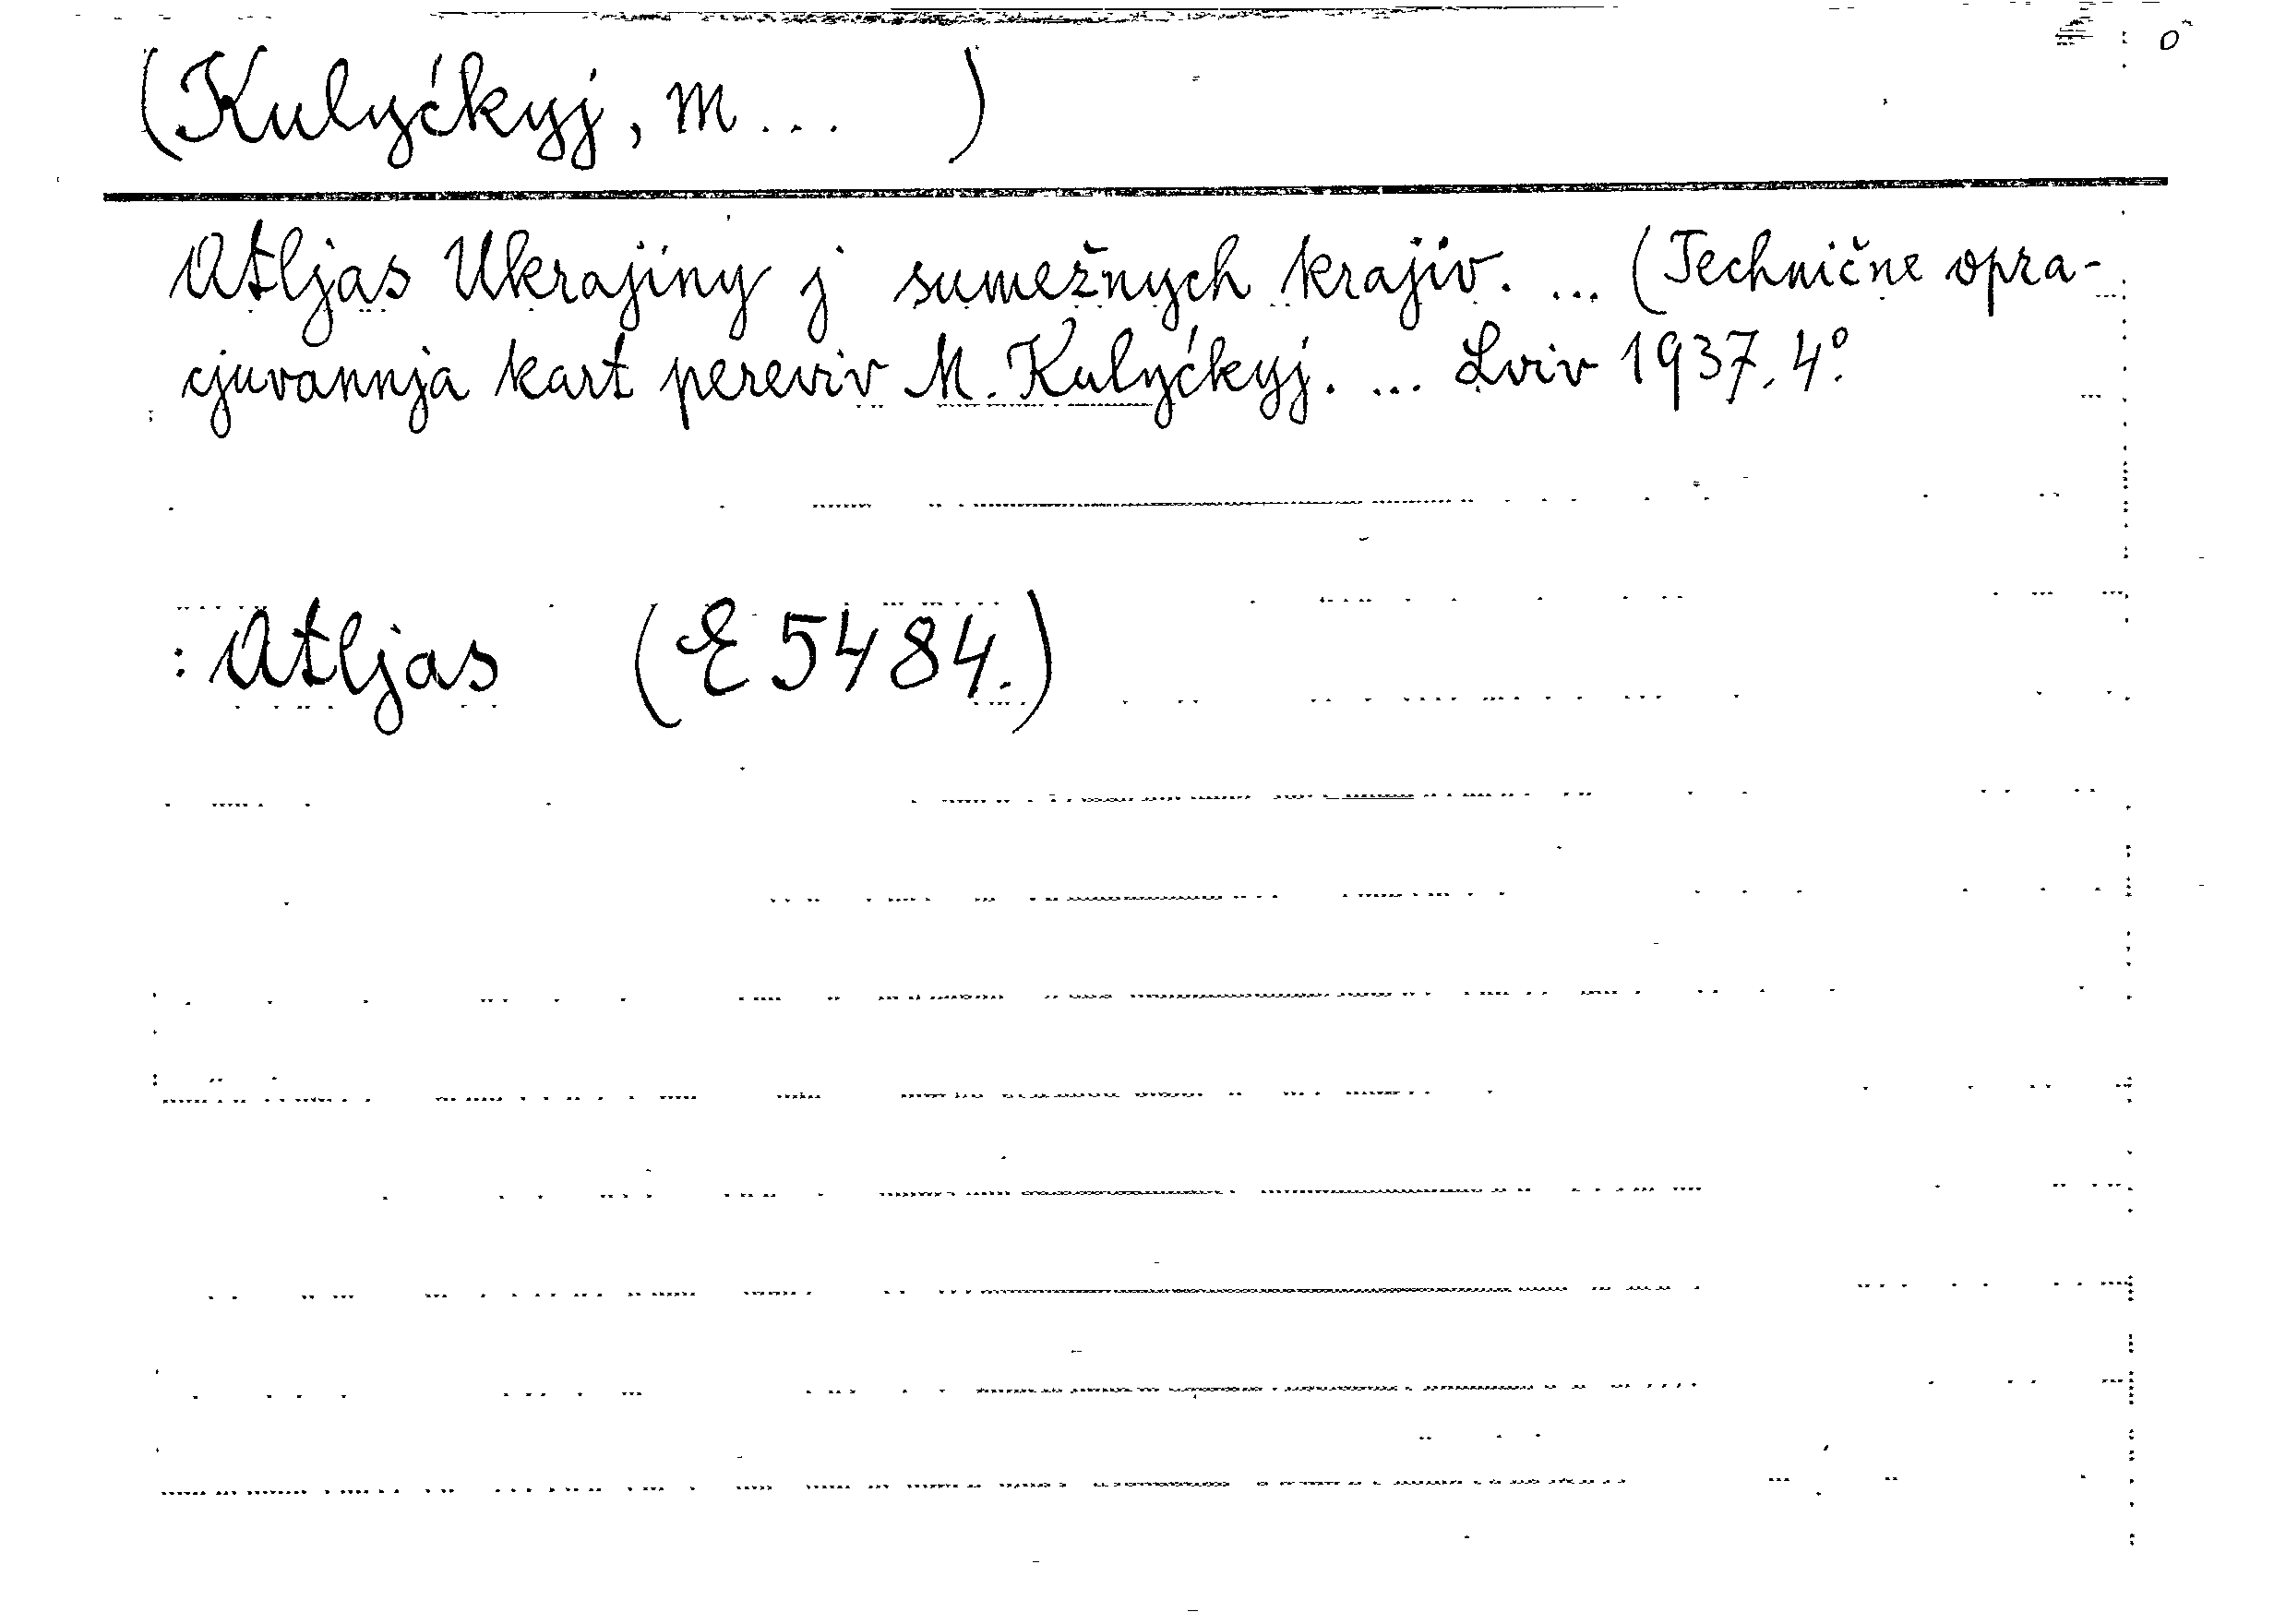 (Kulyćkyj, M... )
Atljas Ukrajiny j sumežnych krajiv. ... (Technične opra-
cjuvannja kart pereviv M. Kulyćkyj. ... Lviv 1937. 4°.
: Atljas (E 5484.)